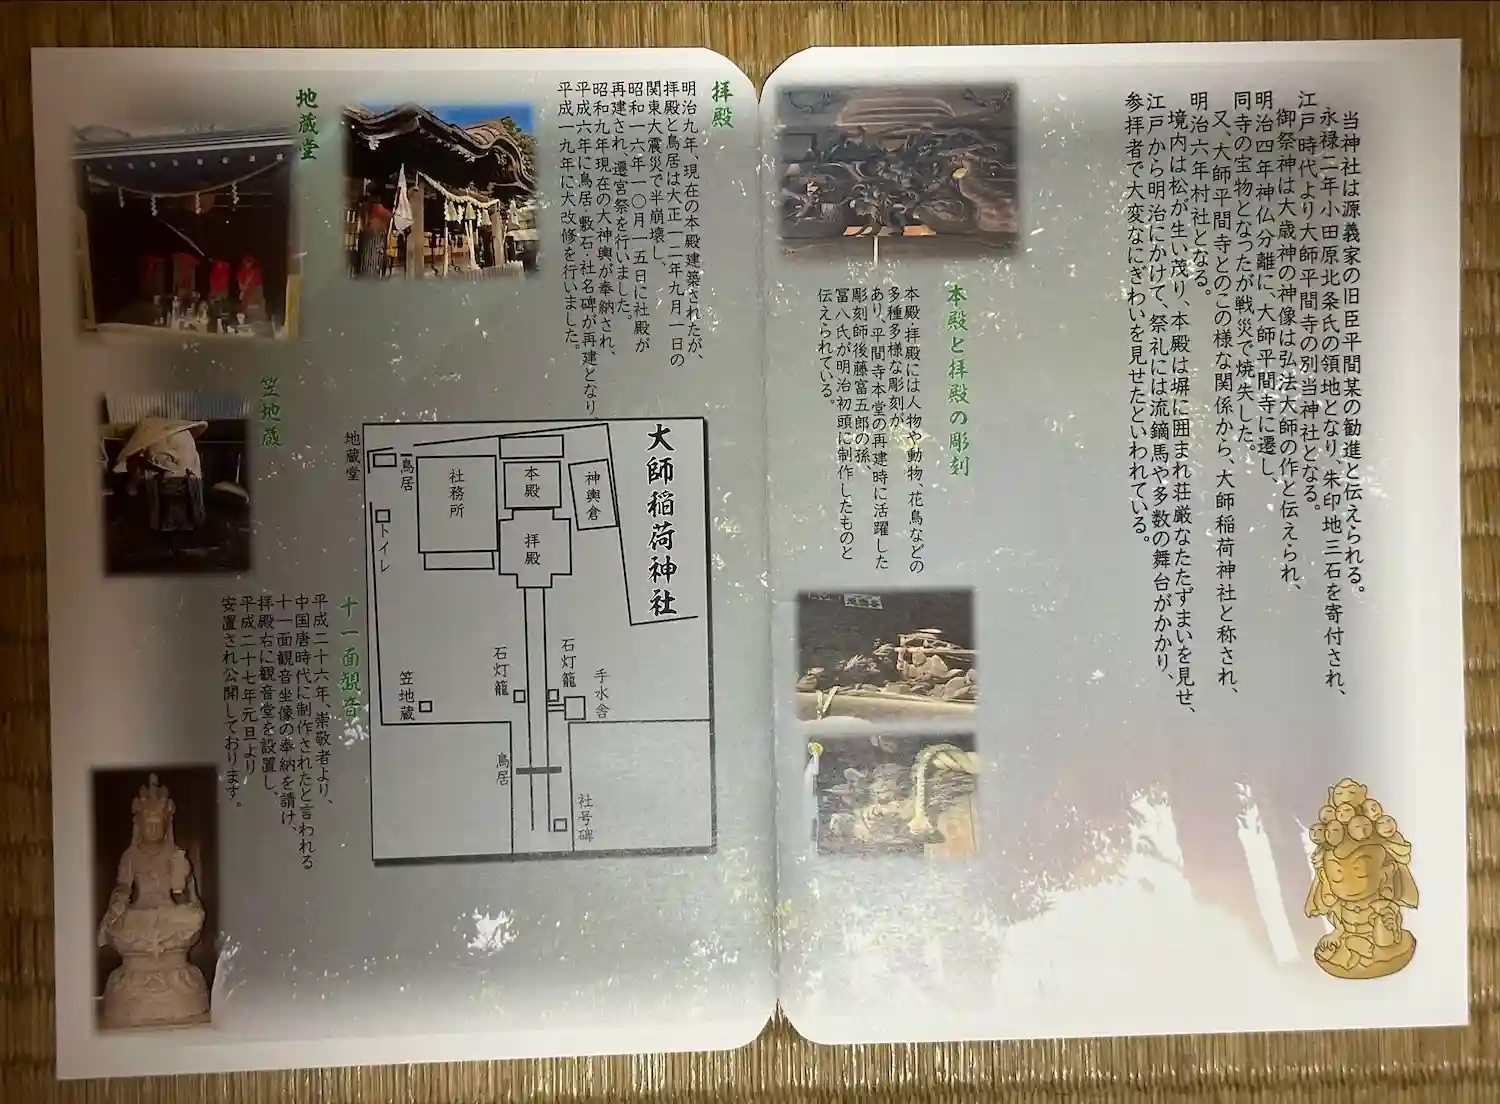 当神社は源義家の旧臣平間某の勧進と伝えられる。
永禄二年小田原北条氏の領地となり、朱印地三石を寄付され、
江戸時代より大師平間寺の別当神社となる。
御祭神は大歳神の神像は弘法大師の作と伝えられ、
明治四年神仏分離に、大師平間寺に遷し、
同寺の宝物となったが戦災で焼失した。
又、大師平間寺とのこの様な関係から、大師稲荷神社と称され、
明治六年村社となる。
境内は松が生い茂り、本殿は塀に囲まれ荘厳なたたずまいを見せ、
江戸から明治にかけて、祭礼には流鏑馬や多数の舞台がかかり、
参拝者で大変なにぎわいを見せたといわれている。
本殿と拝殿の彫刻
本殿・拝殿には人物や動物、花鳥などの
多種多様な彫刻が
あり、平間寺本堂の再建時に活躍した
彫刻師後藤富五郎の孫、
冨八氏が明治初頭に制作したものと
伝えられている。
拝殿
明治九年、現在の本殿建築されたが、
拝殿と鳥居は大正一二年九月一日の
関東大震災で半崩壊し、
昭和一六年一〇月一五日に社殿が
再建され、遷宮祭を行いました。
昭和九年現在の大神輿が奉納され、
平成六年に鳥居・敷石・社名碑が再建となり、
平成一九年に大改修を行いました。
地蔵堂
笠地蔵
大師稲荷神社
神輿倉
本殿
拝殿
社務所
鳥居
地蔵堂
トイレ
手水舎
石灯籠
石灯籠
笠地蔵
鳥居
社号碑
十一面観音
平成二十六年、崇敬者より、
中国唐時代に制作されたと言われる
十一面観音坐像の奉納を請け、
拝殿右に観音堂を設置し、
平成二十七年元旦より
安置され公開しております。